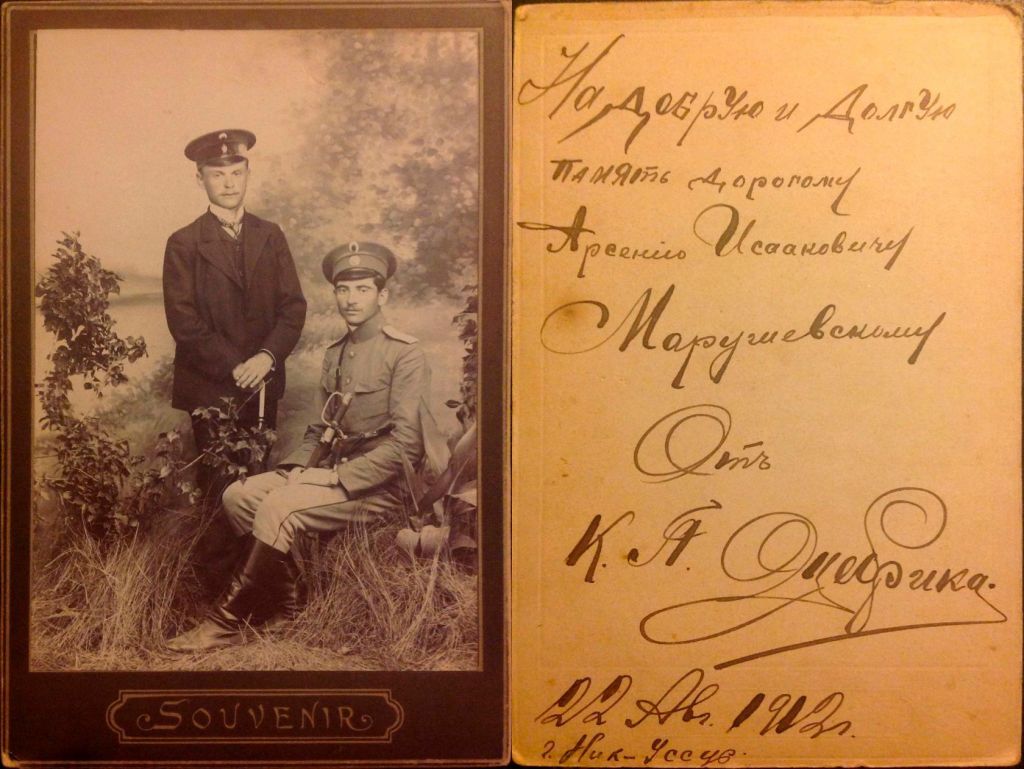 SOUVENIR
На добрую и долгую
память дорогому
Арсенію Исааковичу
Марушевскому
Отъ
К. А.
22 Авг. 1912г.
г. Ник-Уссур.